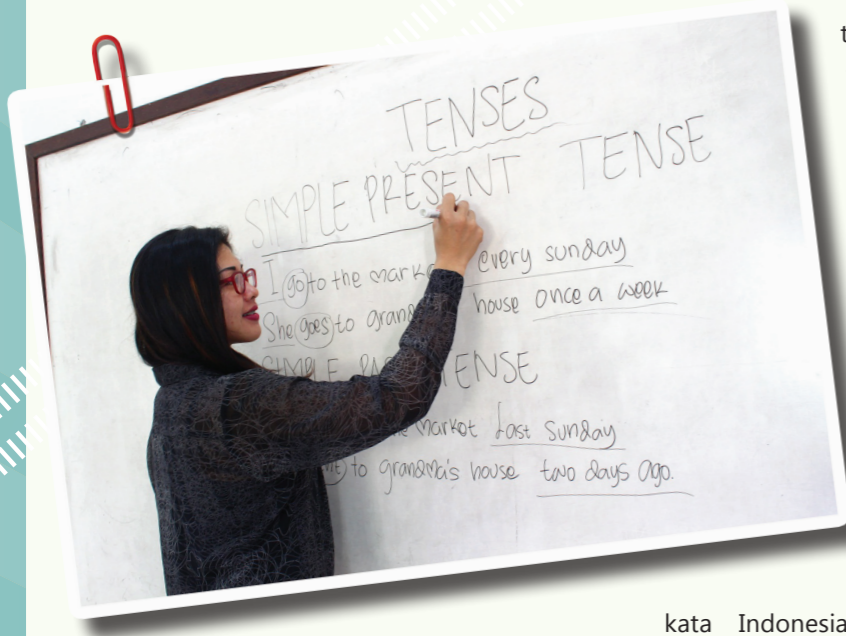 t
TENSES
SIMPLE PRESENT TENSE
I go to the mark every sunday
She goes to gran house once a week
TENSE
market last Sunday
to grandma's house two days ago.
kata Indonesia